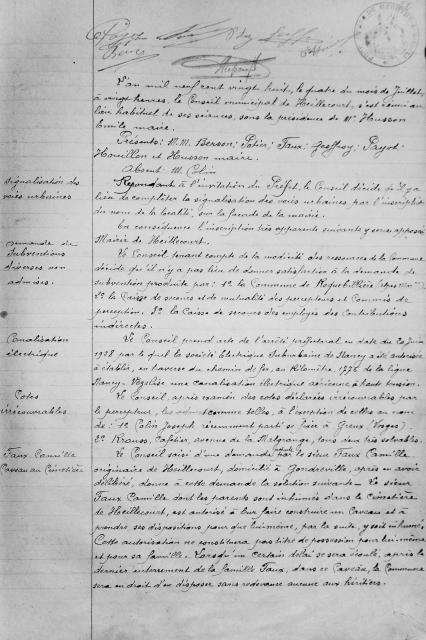 L'an mil neuf cent vingt huit, le quatre du mois de Juillet,
à vingt heures, le Conseil municipal de Heillecourt, s'est réuni au
lieu habituel de ses séances, sous la présidence de Mr Husson
Emile maire.
Présents: M.M. Bersson; Potier; Faux; Geoffroy; Payot
Houillon et Husson maire.
Absent M. Colin
signalisation des
voies urbaines
Répondant à l'invitation du Préfet, le Conseil décide qu'il y a
lieu de compléter la signalisation des voies urbaines par l'inscription
du nom de la localité, sur la façade de la mairie.
En conséquence l'inscription très apparente suivante y sera apposée
Mairie de Heillecourt.
demande de
Subventions
diverses non
admises.
Le Conseil tenant compte de la modicité des ressources de la Commune
décide qu'il n'y a pas lieu de donner satisfaction à la demande de
subvention produite par: 1º la Commune de Roquebillière
2º la Caisse de secours et de mutualité des percepteurs et Commis de
perception. 3º la Caisse de secours des employés des Contributions
indirectes.
Canalisation
électrique
Le Conseil prend acte de l'arrêté préfectoral en date du 20 Juin
1928 par lequel la société Electrique Suburbaine de Nancy a été autorisée
à établir, en travers du chemin de fer, au Kilomètre, de la ligne
Nancy-Vézelise une canalisation électrique aérienne à haute tension.
Cotes
irrécouvrables
Le Conseil, après examen des cotes déclarées irrécouvrables par
le percepteur, les admet comme telles, à l'exception de celles au nom
de: 1º Colin Joseph récemment parti se fixer à Greux (Vosges).
2º Krauss, Cafetier, avenue de la Malgrange, tous deux très solvables.
Faux Camille
Caveau au Cimetière
Le Conseil saisi d'une demande par le sieur Faux Camille
originaire de Heillecourt, domicilié à Gondreville, après en avoir
délibéré, donne à cette demande la solution suivante - Le sieur
Faux Camille dont les parents sont inhumés dans le Cimetière
de Heillecourt, est autorisé à leur faire construire un Caveau et à
prendre ses dispositions pour que lui-même, par la suite, y soit inhumé.
Cette autorisation ne constituera pas titre de possession pour lui-même
et pour sa famille. Lorsqu'un certain délai se sera écoulé, après le
dernier enterrement de la famille Faux, dans ce Caveau, la Commune
sera en droit d'en disposer sans redevance aucune aux héritiers.